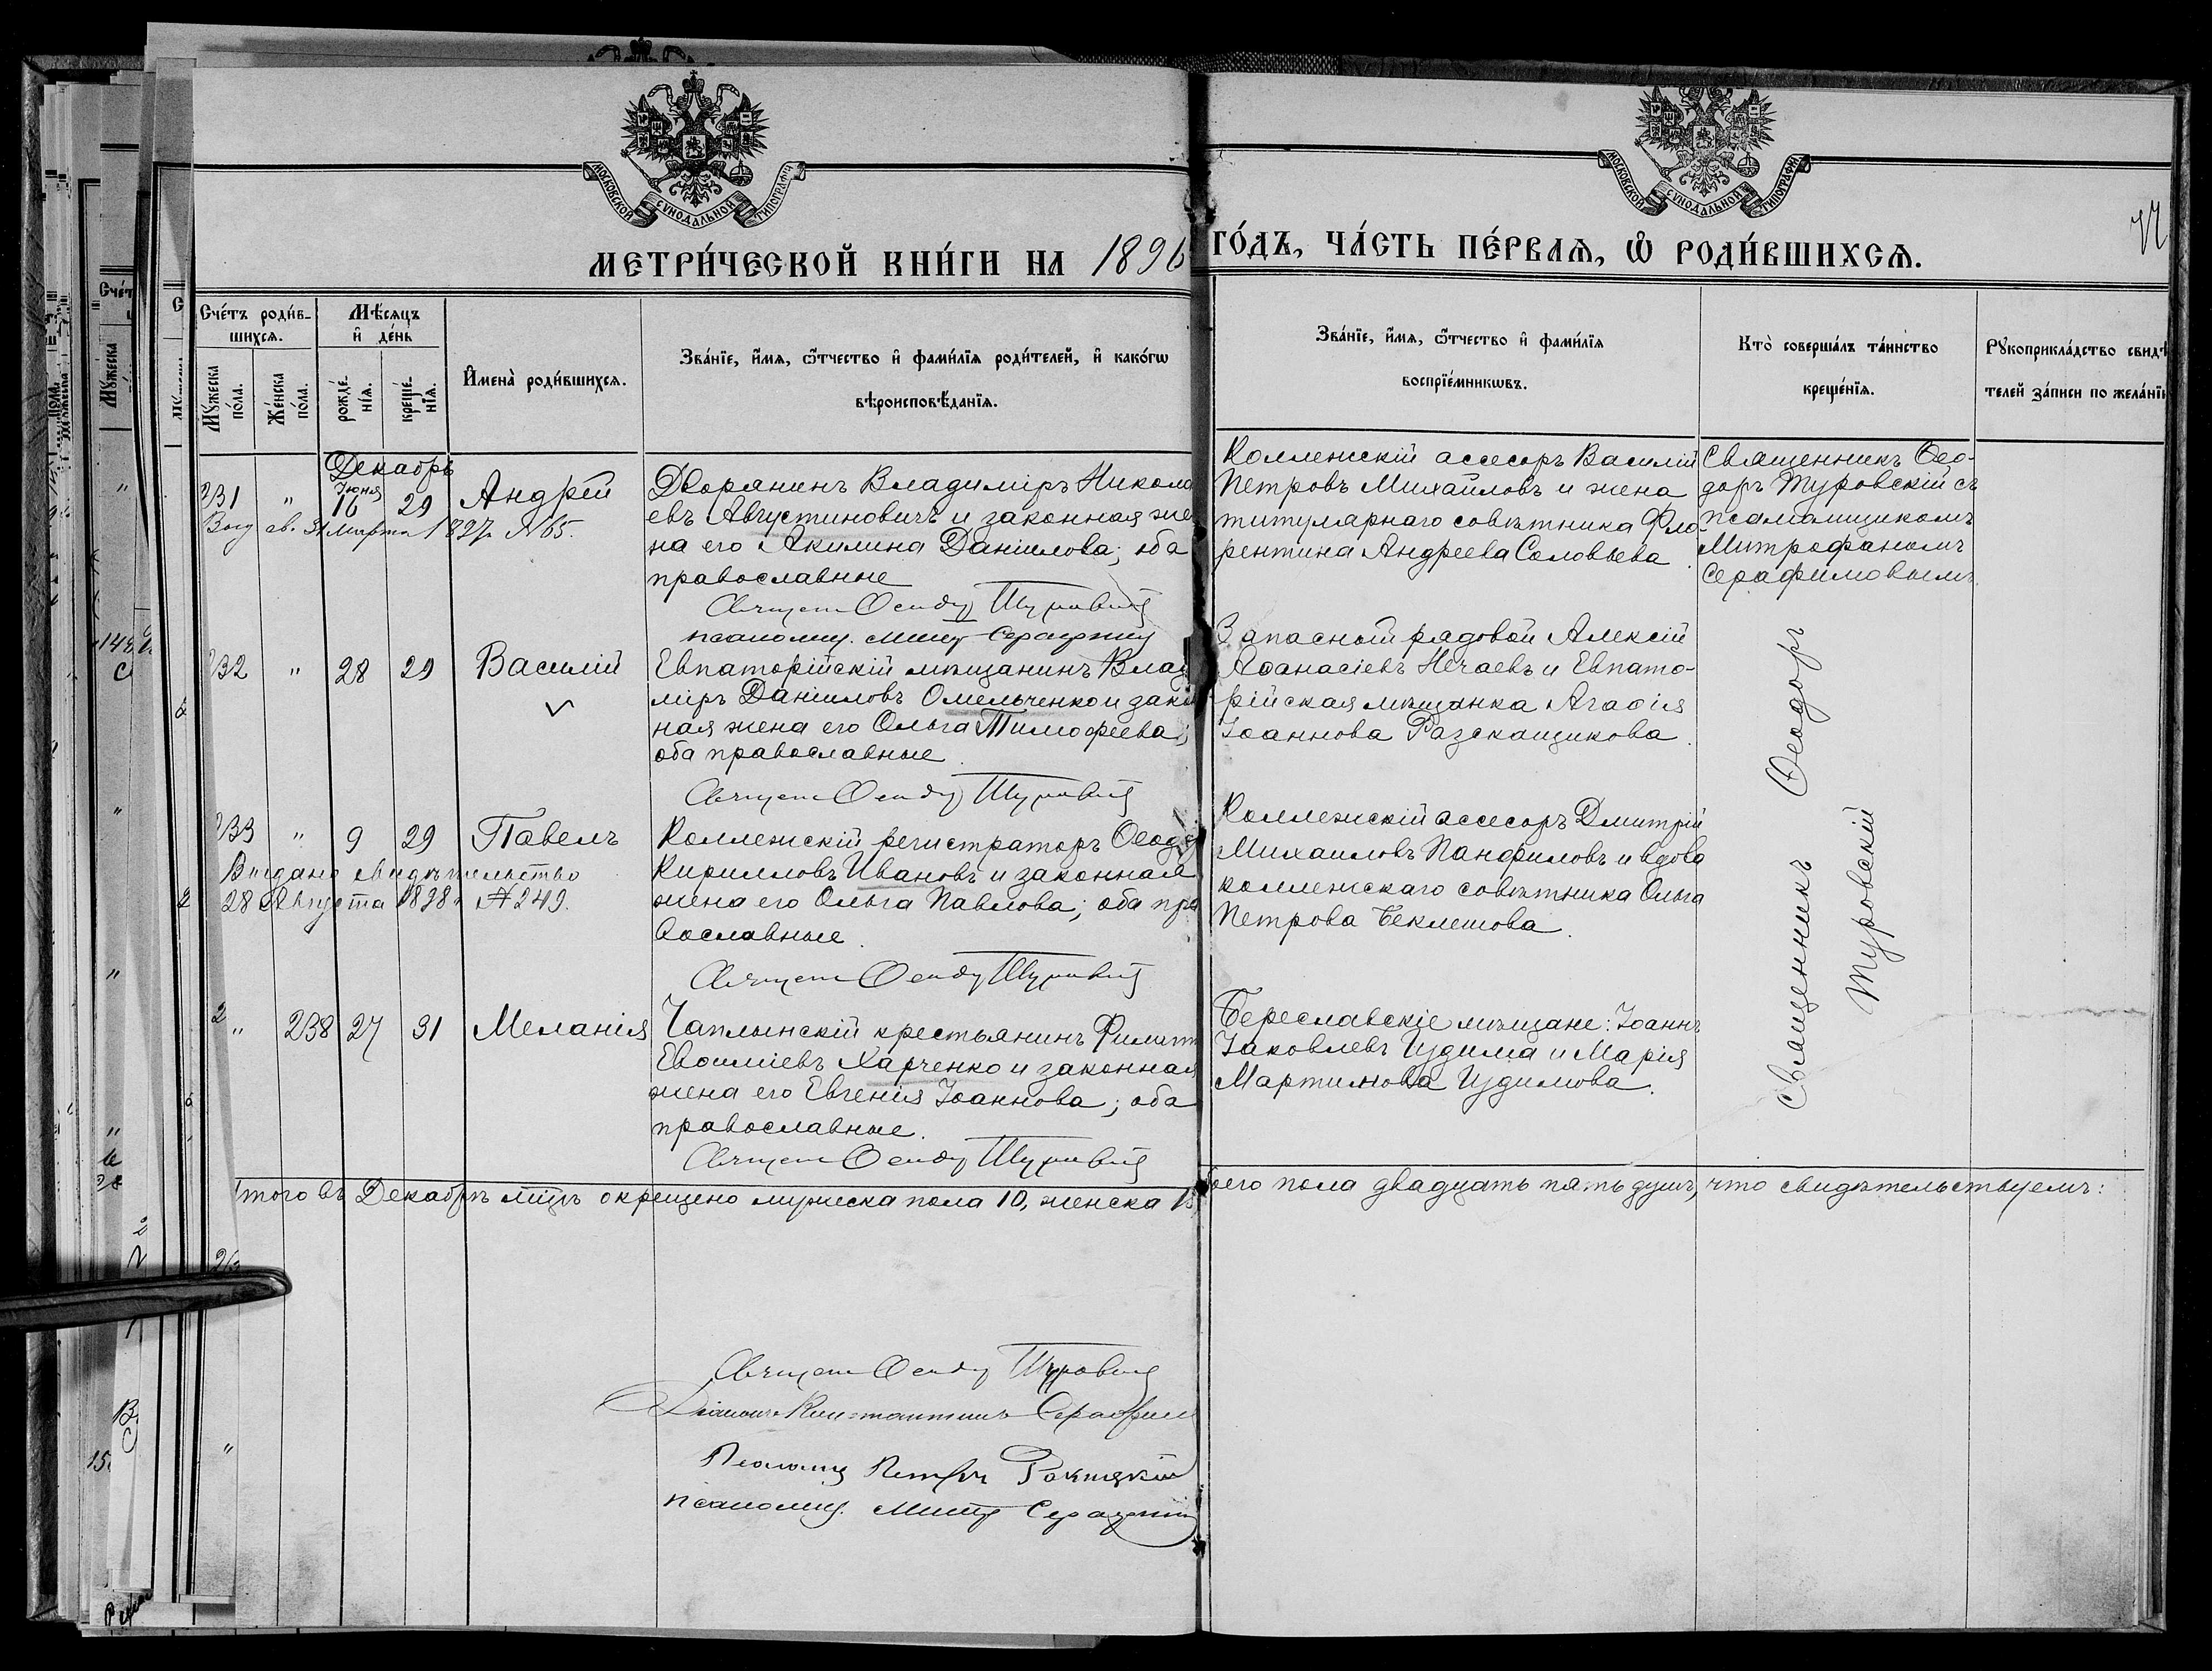 МОСКОВСКОЙ СѴНОДАЛЬНОЙ ТИПОГРАФІИ
МОСКОВСКОЙ СѴНОДАЛЬНОЙ ТИПОГРАФІИ
МЕТРИ́ЧЕСКОЙ КНИ́ГИ НА 1896 ГО́ДЪ, ЧА́СТЬ ПЕ́РВАѦ, Ѡ РОДИ́ВШИХСѦ.
Сче́тъ роди́в-
шихсѧ.
Мꙋ́жеска по́ла.
Же́нска по́ла.
Мѣ́сяцъ
и де́нь
рожде́-нїѧ.
креще́-нїѧ.
Имена̀ роди́вшихсѧ.
Зва́нїе, и́мѧ, ѻ́тчество и фами́лїѧ роди́телей, и како́гѡ
вѣроисповѣ́данїѧ.
Зва́нїе, и́мѧ, ѻ́тчество и фами́лїѧ
воспрїе́мникѡвъ.
Кто̀ соверша́лъ та́инство
креще́нїѧ.
Рꙋкоприкла́дство свидѣ
телей за́писи по жела́нїю
Декабрь
231 " Іюня 16 29 Андрей
Выд св. 31 Марта 1897 г. №65.
Дворянинъ Владиміръ Никола
евъ Августиновичъ и законная же
на его Акилина Даніилова; оба
православные
Священ Ѳеодор Туровскій
псаломщ. Митр Серафимов
Коллежскій ассесоръ Василій
Петровъ Михайловъ и жена
титулярнаго совѣтника Фло-
рентина Андреева Соловьева.
Священникъ Ѳео-
доръ Туровскій съ
псаломщикомъ
Митрофаномъ
Серафимовымъ
232 " 28 29 Василій
Евпаторійскій мѣщанинъ Влад
міръ Даніиловъ Омельченко и зако
ная жена его Ольга Тимофеева;
оба православные.
Священ Ѳеодор Туровскій
Запасной рядовой Алексій
Аѳанасіевъ Нечаевъ и Евпато-
рійская мѣщанка Агаѳія
Іоаннова Разскащикова.
Священникъ Ѳеодоръ
Туровскій
233 " 9 29 Павелъ
Выдано свидѣтельство
28 Августа 1898 г. №249.
Коллежскій регистраторъ Ѳеодо
Кирилловъ Ивановъ и законная
жена его Ольга Павлова; оба пра
вославные.
Священ Ѳеодор Туровскій
Коллежскій ассесоръ Дмитрій
Михаиловъ Панфиловъ и вдова
коллежскаго совѣтника Ольга
Петрова Беклешова.
" 238 27 31 Меланія
Чаплынскій крестьянинъ Филипп
Евѳиміевъ Харченко и законная
жена его Евгенія Іоаннова; оба
православные.
Священ Ѳеодор Туровскій
Береславскіе мѣщане: Іоаннъ
Іаковлевъ Цудима и Марія
Мартинова Цудимова.
Итого въ Декабрѣ мцѣ окрещено мужеска пола 10, женска 15 обоего пола двадцать пять душъ, что свидѣтельствуемъ:
Священ Ѳеодор Туровскій
Діаконъ Константинъ Серафим
Псаломщ Петръ Ракицкій
псаломщ. Митр Серафимов